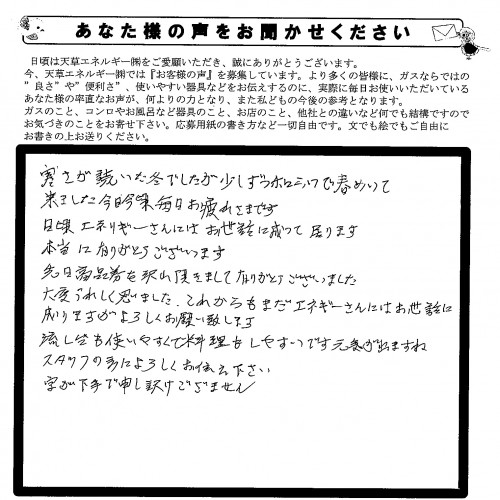 あなた様の声をお聞かせください
日頃は天草エネルギー㈱をご愛顧いただき、誠にありがとうございます。
今、天草エネルギー㈱では『お客様の声』を募集しています。より多くの皆様に、ガスならではの
"良さ"や"便利さ"、使いやすい器具などをお伝えするのに、実際に毎日お使いいただいている
あなた様の率直なお声が、何よりの力となり、また私どもの今後の参考となります。
ガスのこと、コンロやお風呂など器具のこと、お店のこと、他社との違いなど何でも結構ですので
お気づきのことをお寄せ下さい。応募用紙の書き方など一切自由です。文でも絵でもご自由に
お書きの上お送りください。
寒さが続いた冬でしたが少しずつ春めいて
来ました今日今 毎日お疲れさまです
日頃エネルギーさんにはお世話に成って居ります
本当にありがとうございます
先日商品券を沢山頂きましてありがとうございました
大変うれしく思いました、これからもまだエネギーさんにはお世話に
成りますがよろしくお願い致します
流し台も使いやすくて料理もしやすいです元気が出ますね
スタッフの方によろしくお伝え下さい
字が下手で申し訳けございません